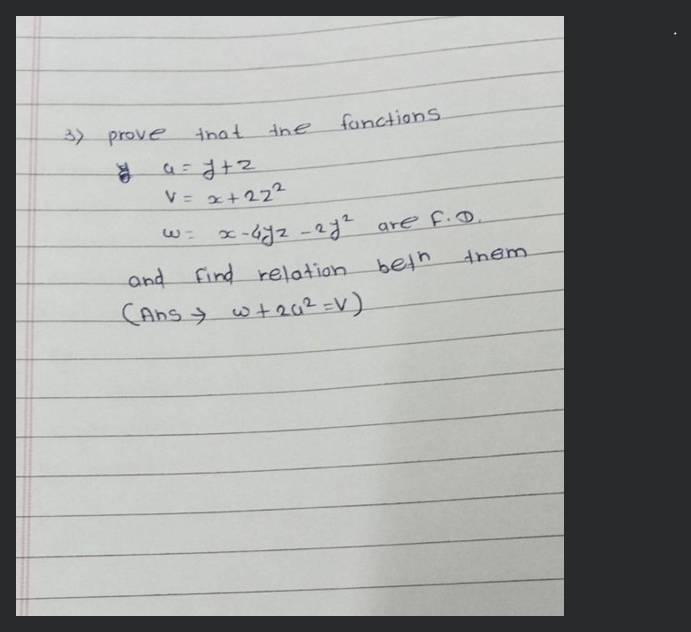 3) prove that the functions
u = y+z
v = x+2z²
w = x-4yz-2y² are F.D.
and find relation betn them
(Ans → w+2u²=v)